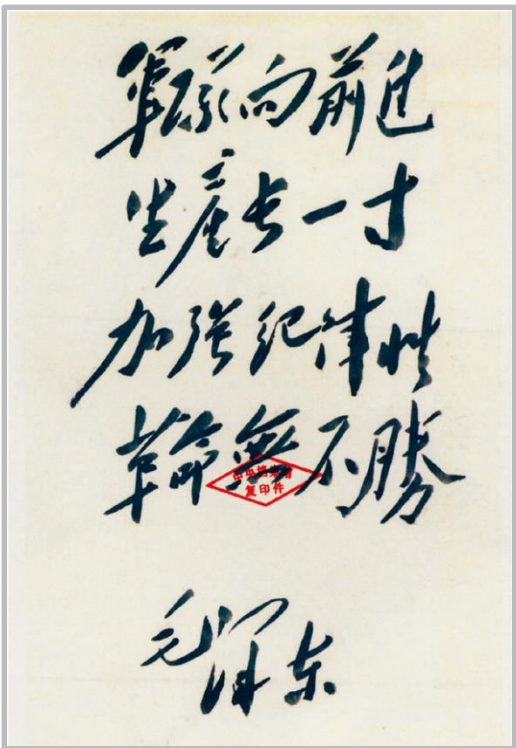 軍隊向前進
生產長一寸
加強紀律性
革命無不勝
中央檔案館
复印件
毛澤东